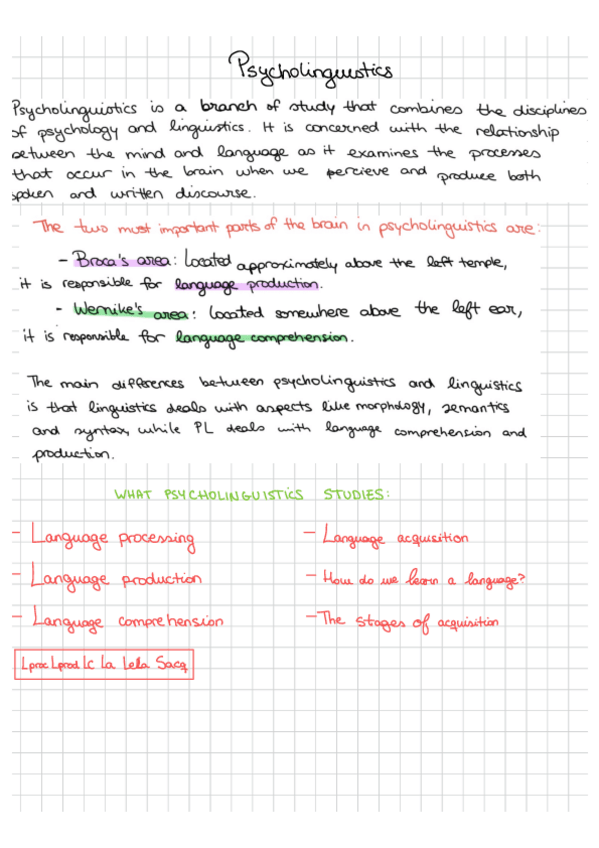 Psycholinguistics
Psycholinguistics is a branch of study that combines the disciplines
of psychology and linguistics. It is concerned with the relationship
between the mind and language as it examines the processes
that occur in the brain when we percieve and produce both
spoken and written discourse.
The two must important parts of the brain in psycholinguistics are:
- Broca's area: Located approximately above the left temple,
it is responsible for language production.
- Wernike's area: Located somewhere above the left ear,
it is responsible for language comprehension.
The main differences between psycholinguistics and linguistics
is that linguistics deals with aspects like morphology, semantics
and syntax, while PL deals with language comprehension and
production.
WHAT PSYCHOLINGUISTICS STUDIES:
- Language processing
- Language production
- Language comprehension
- Language acquisition
- How do we learn a language?
- The stages of acquisition
Lproc Lprod Lc La Lela Sacq